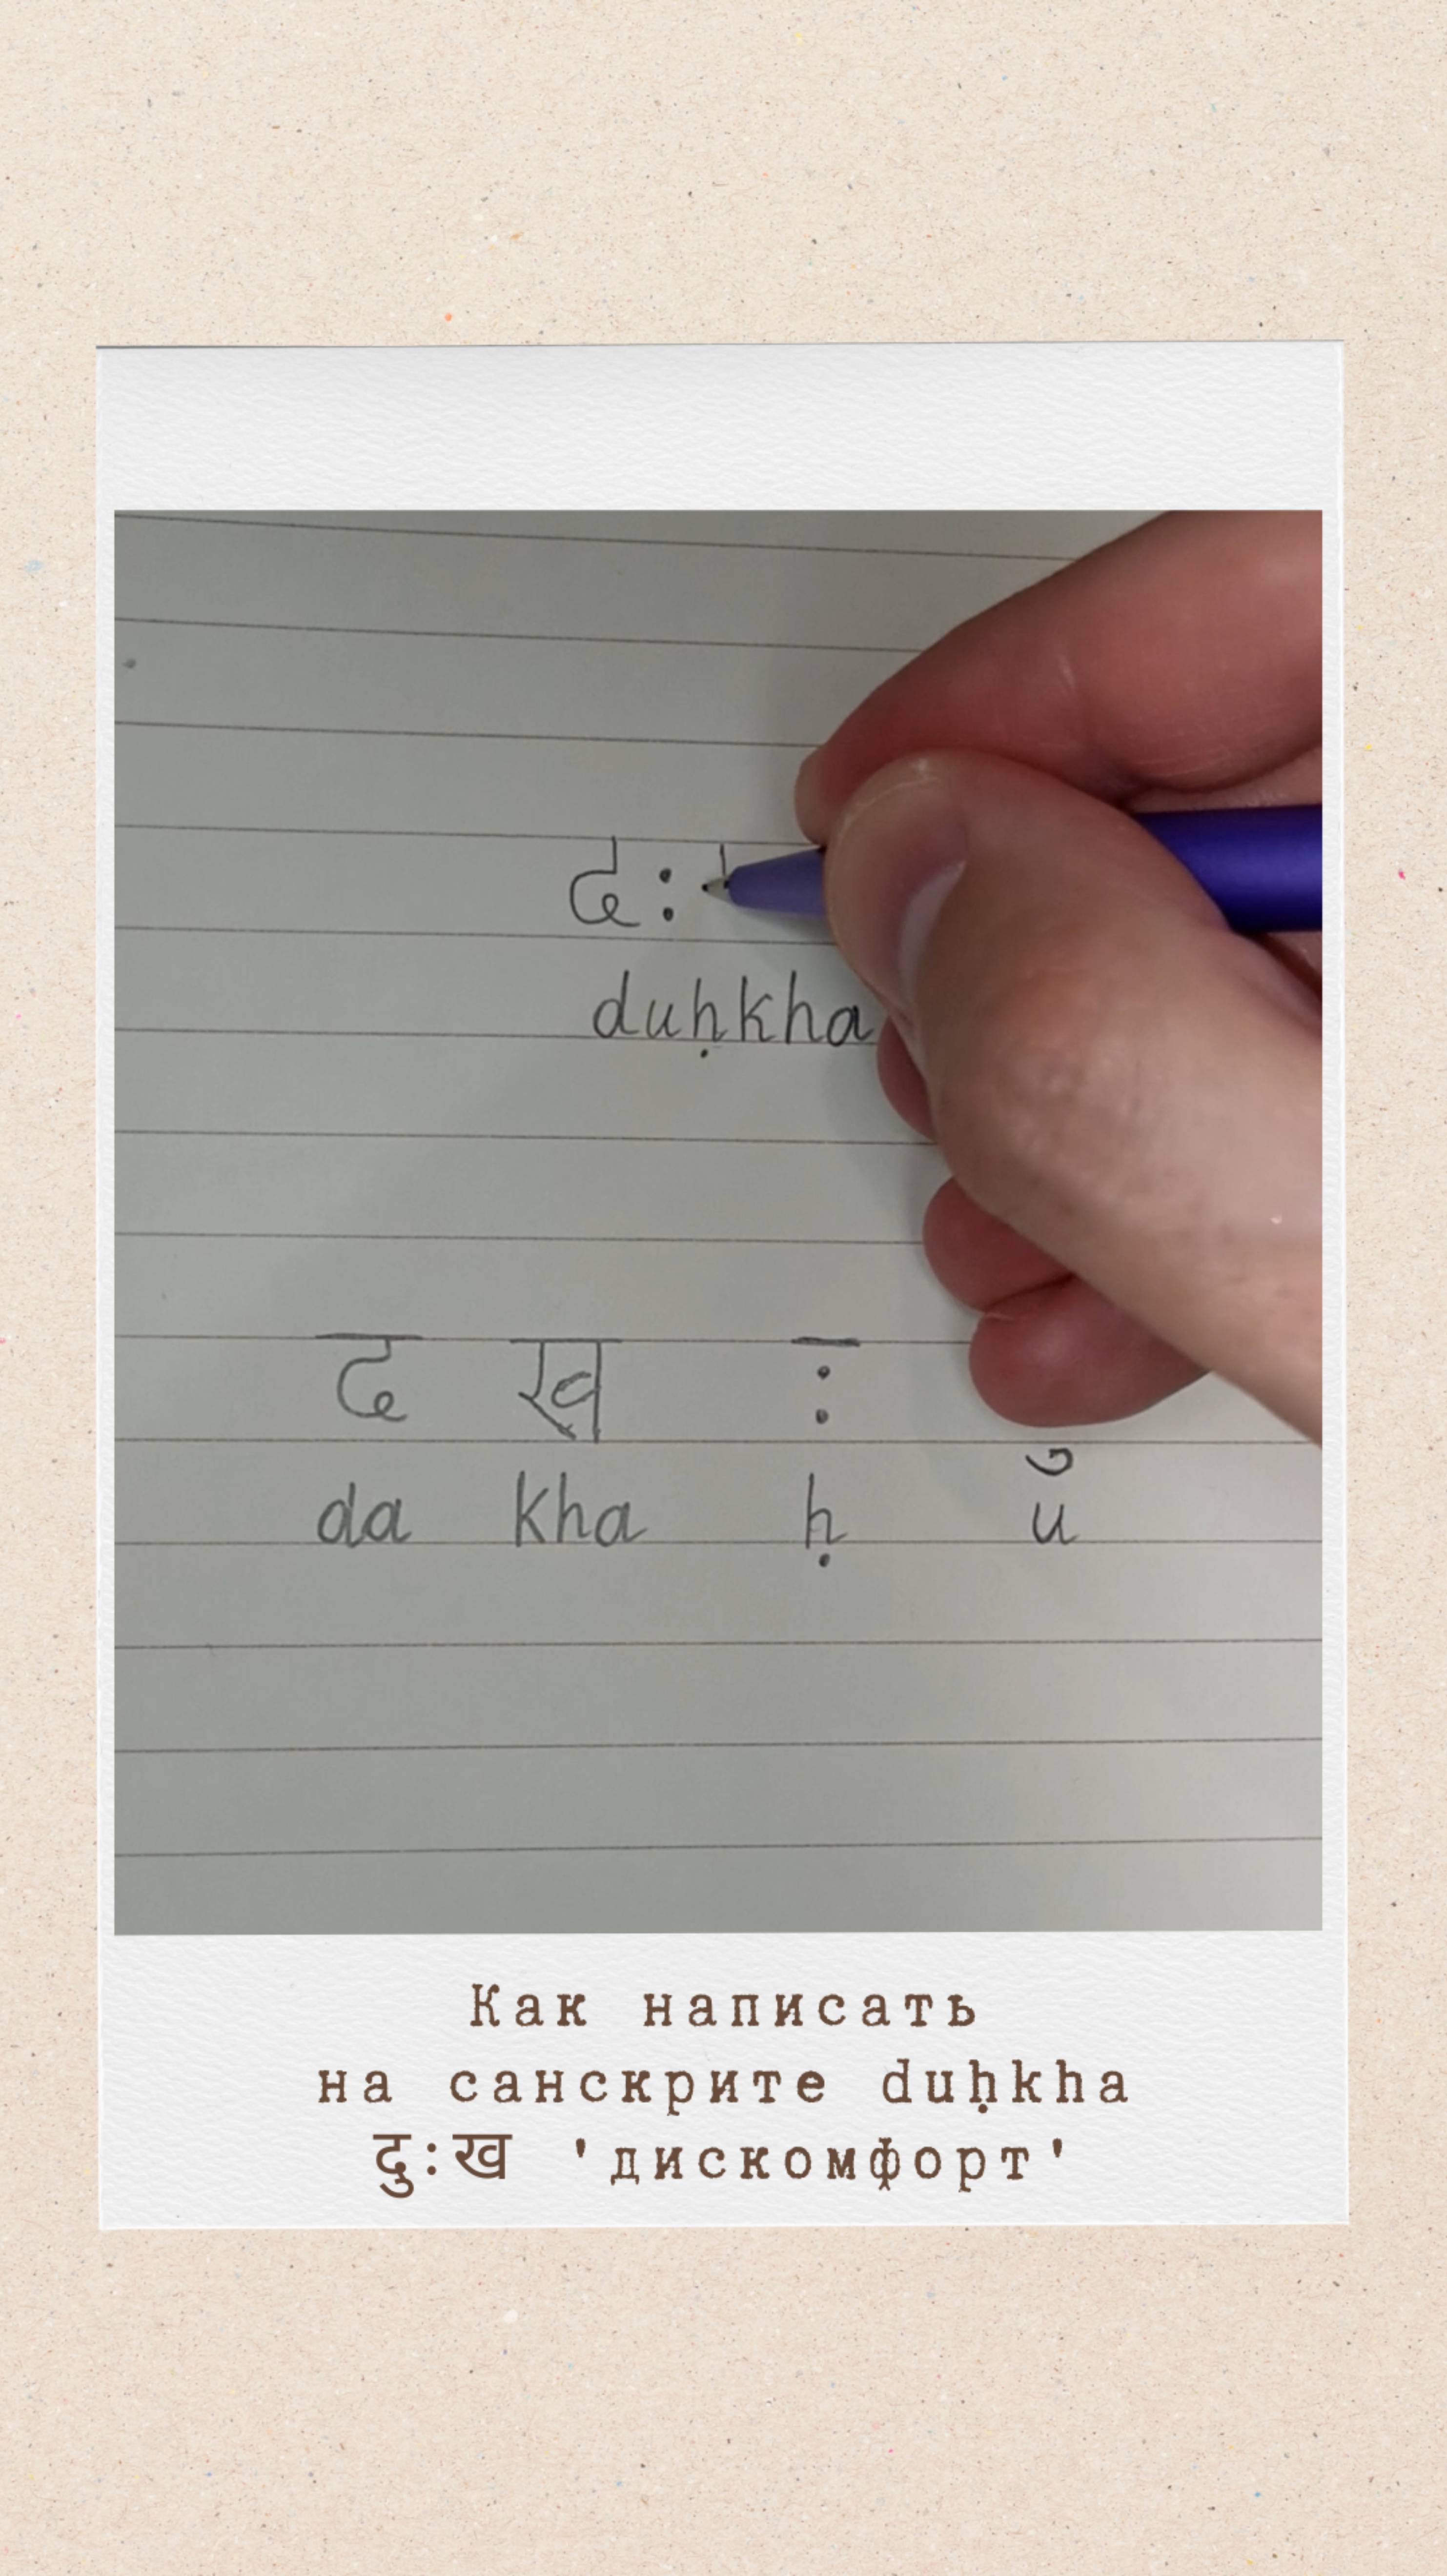 द:
duḥkha
द ख : ु
da kha ḥ u
Как написать
на санскрите duḥkha
दुःख 'дискомфорт'